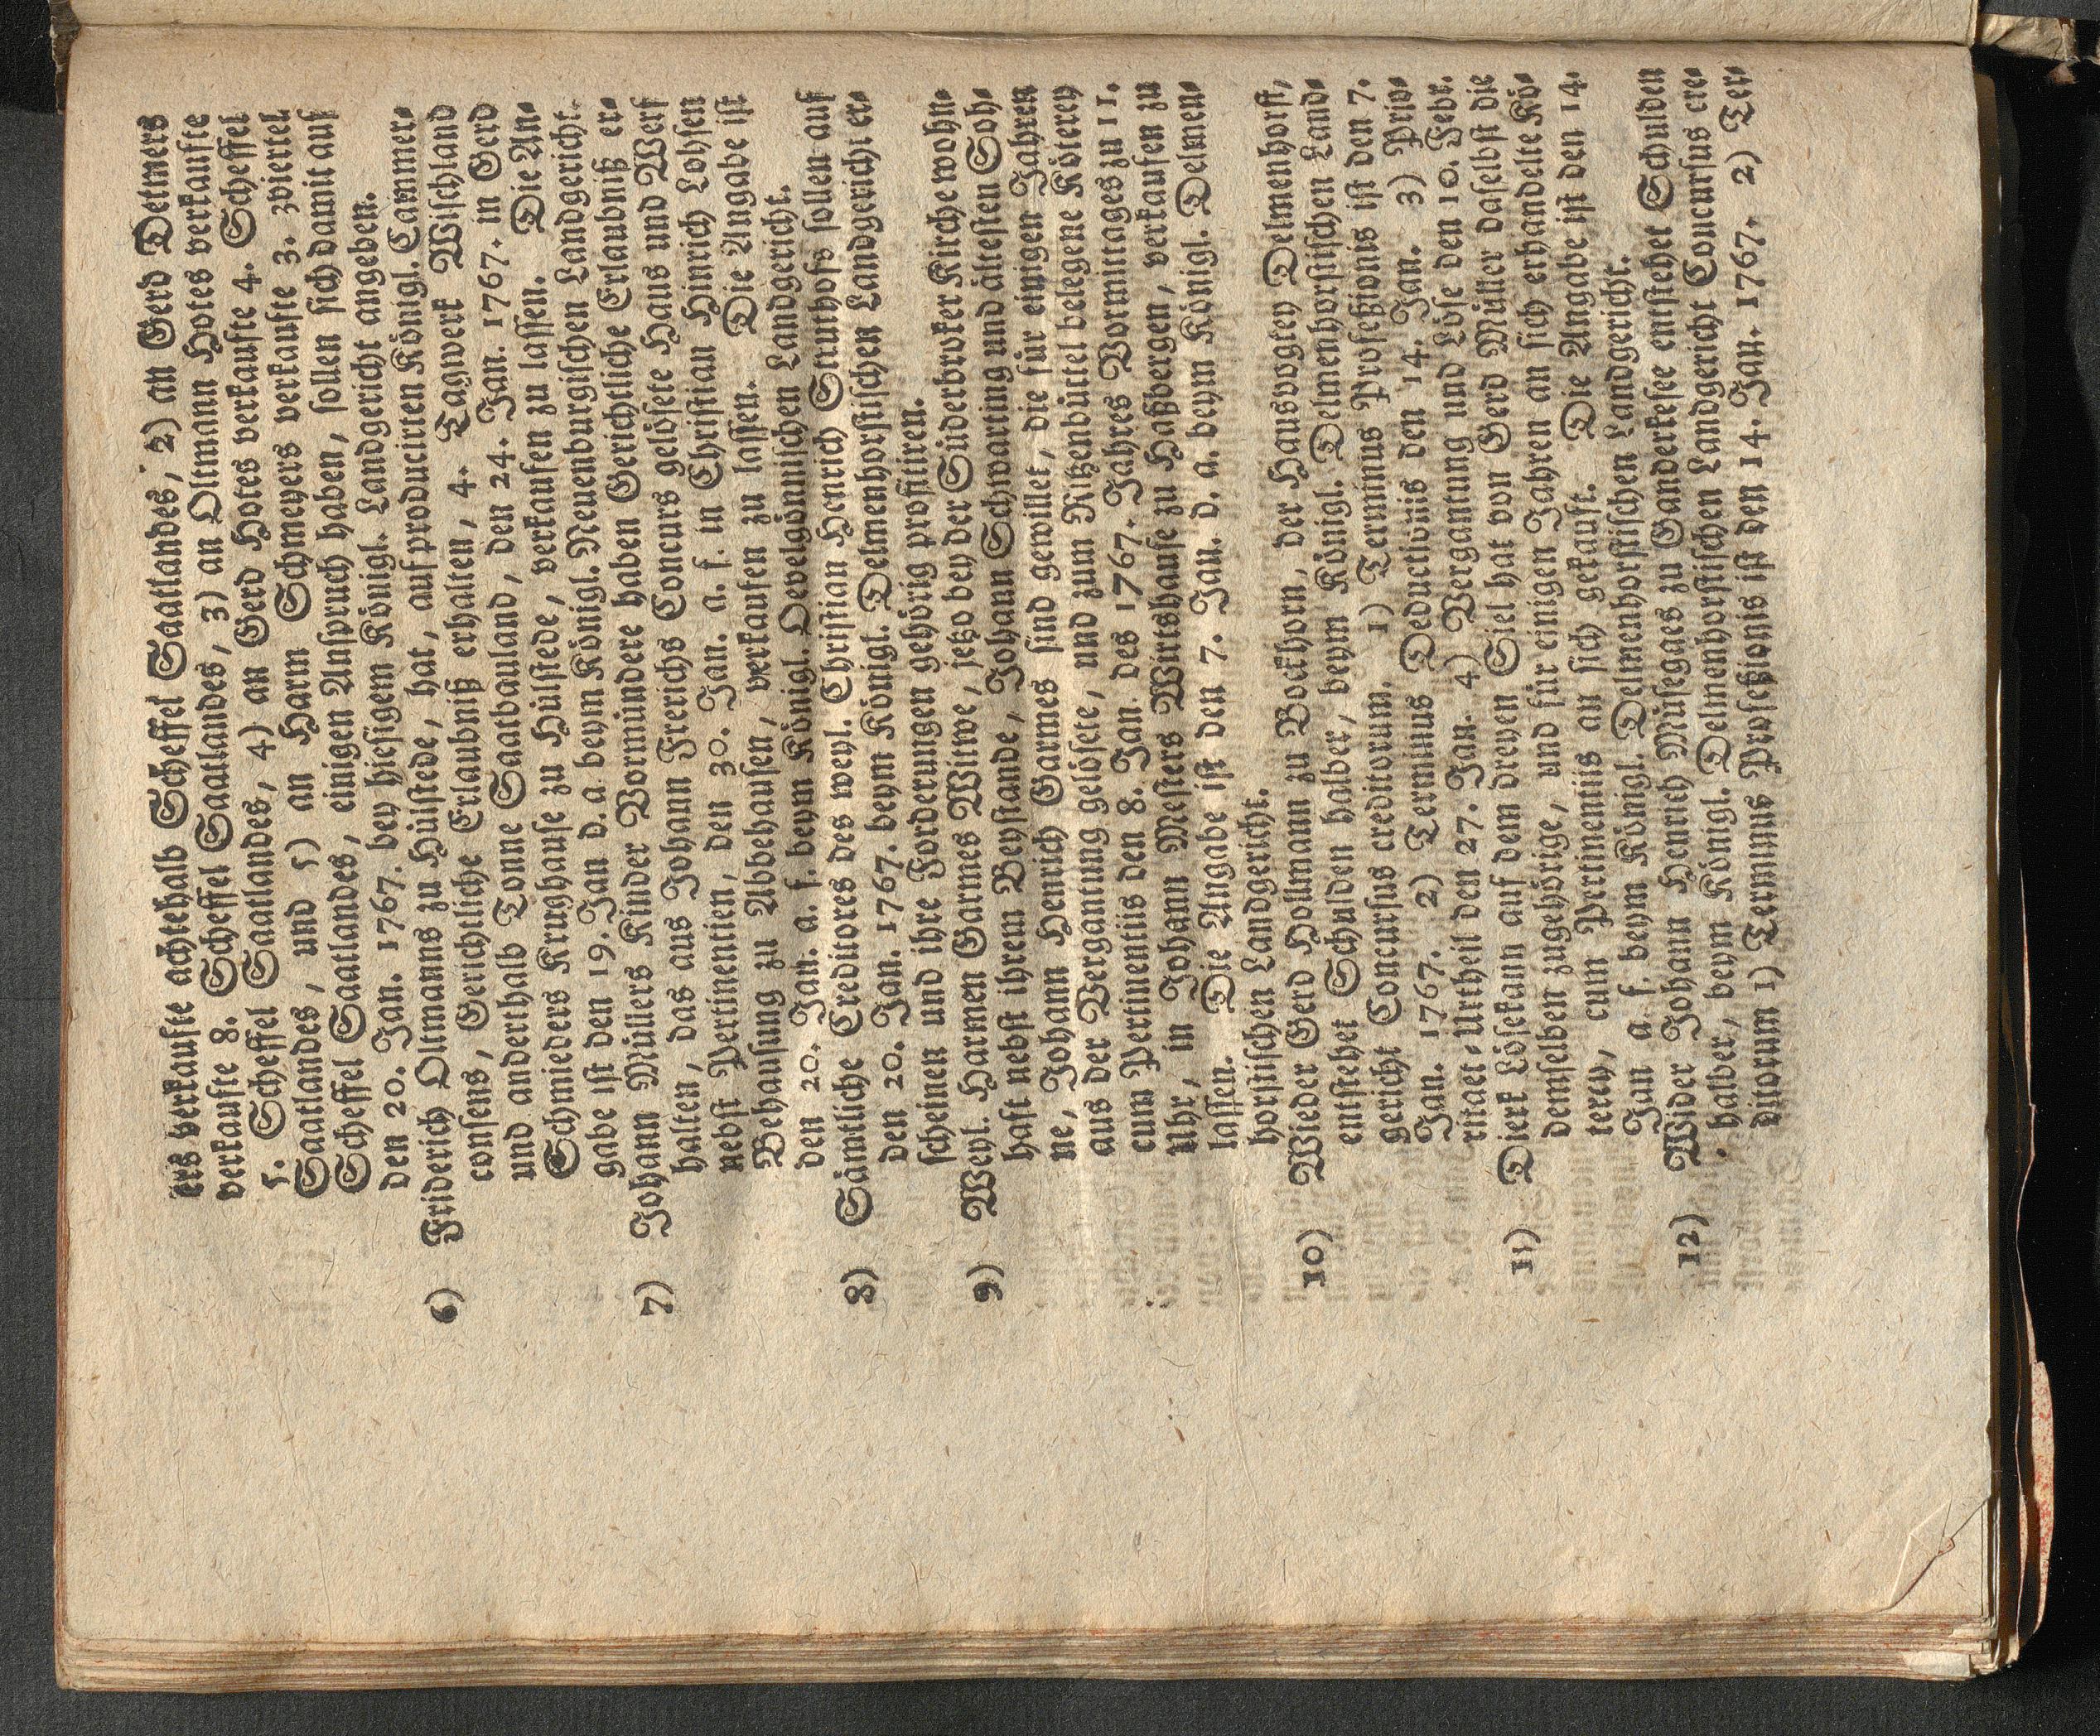 ers verkaufte achtehalb Scheffel Saatlandes, 2) an Gerd Detmers
verkaufte 8. Scheffel Saatlandes, 3) an Oltmann Hotes verkaufte
5. Scheffel Saatlandes, 4) an Gerd Hotes verkaufte 4. Scheffel
Saatlandes, und 5) an Harm Schmeyers verkaufte 3. zviertel
Scheffel Saatlandes, einigen Anspruch haben, sollen sich damit auf
den 20. Jan. 1767. bey hiesigem Königl. Landgericht angeben.
6) Friderich Oltmanns zu Hülstede, hat, auf producirten Königl. Cammer-
consens, Gerichtliche Erlaubniß erhalten, 4. Tagwerk Wischland
und anderthalb Tonne Saatbauland, den 24. Jan. 1767. in Gerd
Schmieders Krughause zu Hülstede, verkaufen zu lassen. Die An-
gabe ist den 19. Jan d. a. beym Königl. Neuenburgischen Landgericht.
7) Johann Müllers Kinder Vormündere haben Gerichtliche Erlaubniß er-
halten, das aus Johann Frerichs Concurs gelösete Haus und Werf
nebst Pertinentien, den 30. Jan. a. f. in Christian Hinrich Lohsen
Behausung zu Abbehausen, verkaufen zu lassen. Die Angabe ist
den 20. Jan. a. f. beym Königl. Oevelgönnischen Landgericht.
8) Sämtliche Creditores des weyl. Christian Henrich Struthofs sollen auf
den 20. Jan. 1767. beym Königl. Delmenhorstischen Landgericht er-
scheinen und ihre Forderungen gehörig profitiren.
9) Weyl. Harmen Garmes Witwe, jetzo bey der Süderbroker Kirche wohn-
haft nebst ihrem Beystande, Johann Schwarting und ältesten Soh-
ne, Johann Henrich Garmes sind gewillet, die für einigen Jahren
aus der Vergantung gelösete, und zum Ritzenbüttel belegene Köterey
cum Pertinentiis den 8. Jan. des 1767. Jahres Vormittages zu 11.
Uhr, in Johann Mesters Wirtshause zu Haßbergen, verkaufen zu
lassen. Die Angabe ist den 7. Jan. d. a. beym Königl. Delmen-
horstischen Landgericht.
10) Wieder Gerd Hollmann zu Bockhorn, der Hausvogtey Delmenhorst,
entstehet Schulden halber, beym Königl. Delmenhorstischen Land-
gericht Concursus creditorum. 1) Terminus Profeßionis ist den 7.
Jan. 1767. 2) Terminus Deductionis den 14. Jan. 3) Prio-
ritaet-Urtheil den 27. Jan. 4) Vergantung und Löse den 10. Febr.
11) Dierk Lösekann auf dem dreyen Siel hat von Gerd Müller daselbst die
demselben zugehörige, und für einigen Jahren an sich erhandelte Kö-
terey, cum Pertinentiis an sich gekauft. Die Angabe ist den 14.
Jan a f. beym Königl. Delmenhorstischen Landgericht.
12) Wider Johann Henrich Müsegaes zu Ganderkesee entstehet Schulden
halber, beym Königl. Delmenhorstischen Landgericht Concursus cre-
ditorum 1) Terminus Profeßionis ist den 14. Jan. 1767. 2) Ter-